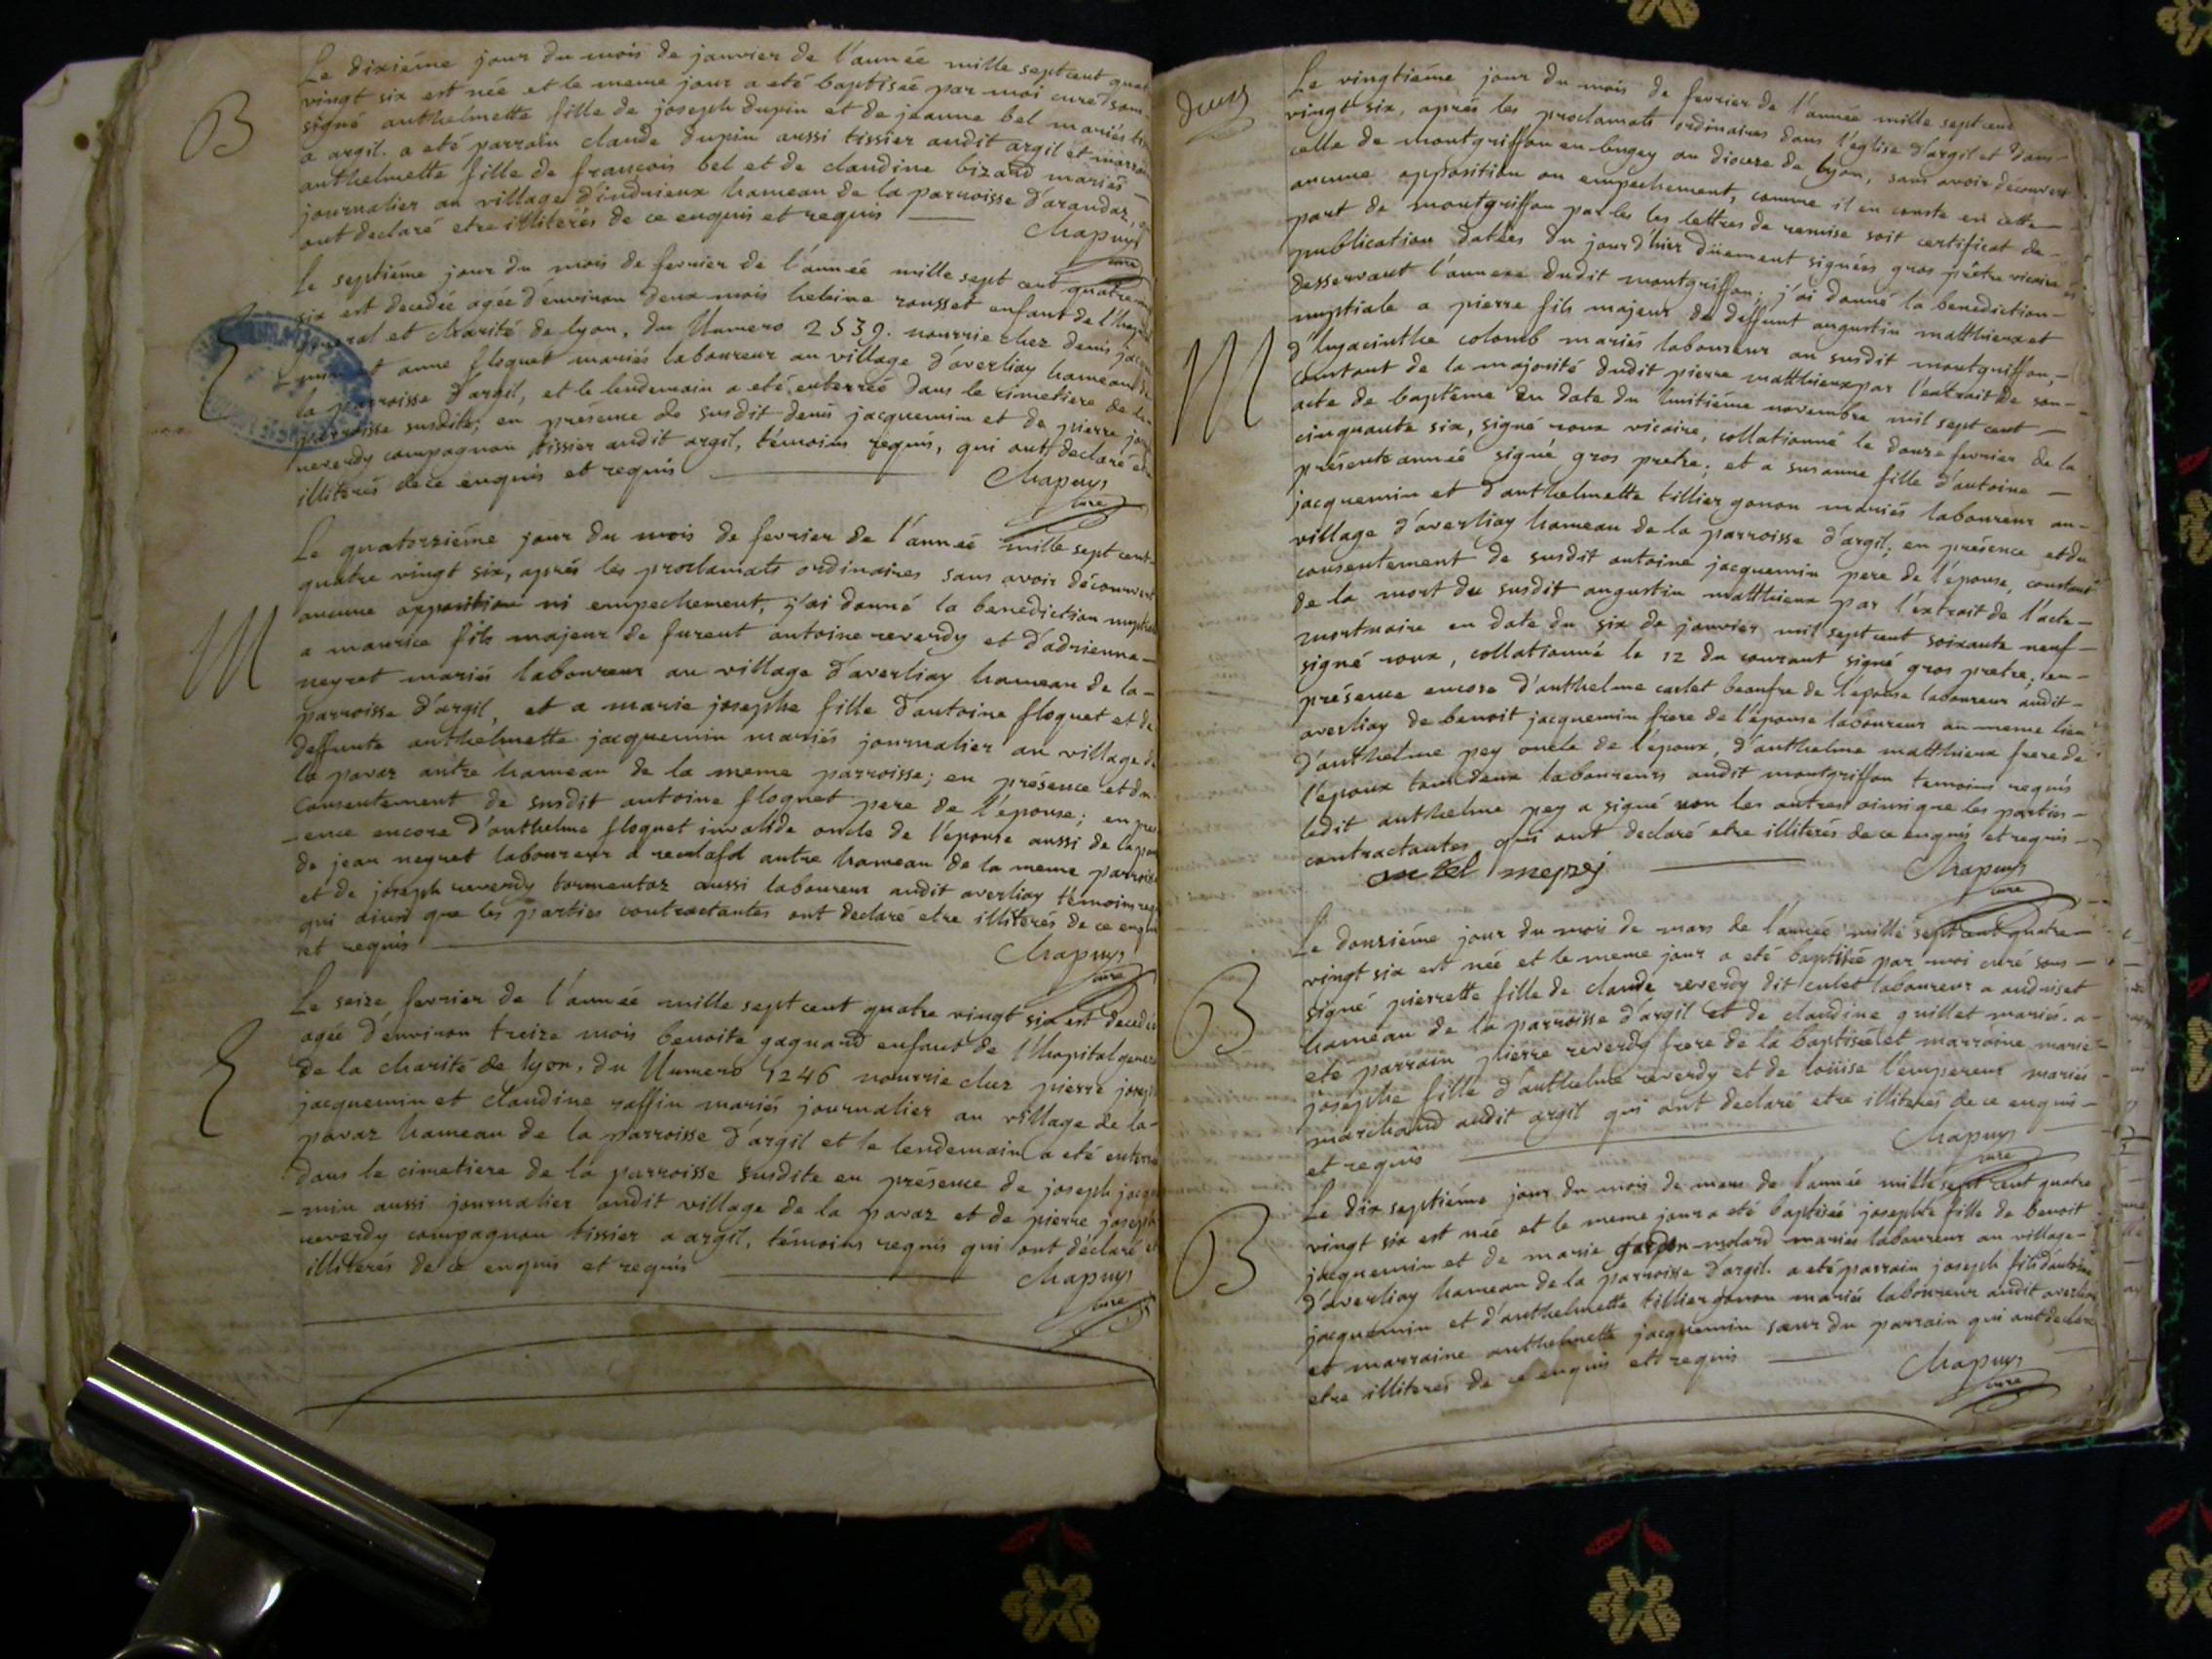 B
Le dixiéme jour du mois de janvier de l'année mille sept cent quat
vingt six est née et le meme jour a eté baptisée par moi curé sous
signé anthelmette fille de joseph dupin et de jeanne bel mariés
a argil. a eté parrain claude dupin aussi tissier audit argil et marrai
anthelmette fille de francois bel et de claudine bizard mariés
journalier au village d'indrieux hameau de la parroisse d'arandaz,
ont declaré etre illiterés de ce enquis et requis
Chapuys
curé
Le septiéme jour du mois de fevrier de l'année mille sept cent quatre
six est decedée agée d'environ deux mois helaine rousset enfant de l'
general et charité de lyon, du Numero 2539. nourrie chez denis
et anne floquet mariés laboureur au village d'averliay hameau de
la parroisse d'argil, et le lendemain a eté enterrée dans le cimetiere de la
parroisse susdite; en présence de susdit denis jacquemin et de pierre jo
reverdy compagnon tissier audit argil, témoins requis, qui ont declaré et
illiterés de ce enquis et requis
Chapuys
curé
M
Le quatorziéme jour du mois de fevrier de l'année mille sept cent
quatre vingt six, aprés les proclamats ordinaires sans avoir découvert
aucune opposition ni empechement, j'ai donné la benediction nuptiale
a maurice fils majeur de furent antoine reverdy et d'adrienne
neyret mariés laboureur au village d'averliay hameau de la
parroisse d'argil, et a marie josephe fille d'antoine floquet et de
deffunte anthelmette jacquemin mariés journalier au village de
la pavaz autre hameau de la meme parroisse; en présence et du
consentement de susdit antoine floquet pere de l'épouse; en pres
-ence encore d'anthelme floquet invalide oncle de l'épouse aussi de la pav
de jean neyret laboureur a autre hameau de la meme parroisse
et de joseph reverdy tormentaz aussi laboureur audit averliay témoins req
qui ainsi que les parties contractantes ont declaré etre illiterés de ce enquis
et requis
Chapuys
curé
Le seize fevrier de l'année mille sept cent quatre vingt six est decedée
agée d'environ treize mois benoite gagnard enfant de l'hopital general
de la charité de lyon, du Numero 1246 nourrie chez pierre joseph
jacquemin et claudine raffin mariés journalier au village de la
pavaz hameau de la parroisse d'argil et le lendemain a eté enterrée
dans le cimetiere de la parroisse susdite en présence de joseph jacque
-min aussi journalier audit village de la pavaz et de pierre joseph
reverdy compagnon tissier a argil, témoins requis qui ont déclaré et
illiterés de ce enquis et requis
Chapuys
curé
deux
M
Le vingtiéme jour du mois de fevrier de l'année mille sept cent
vingt six, aprés les proclamats ordinaires dans l'église d'argil et dans
celle de montgriffon en bugey au diocese de lyon, sans avoir découvert
aucune opposition ou empechement, comme il en conste en cette
part de montgriffon par les les lettres de remise soit certificat de
publication datées du jour d'hier düement signées gros prêtre vicaire
desservant l'annexe dudit montgriffon; j'ai donné la benediction
nuptiale a pierre fils majeur de deffunt augustin matthieux et
d'hyacinthe colomb mariés laboureur au susdit montgriffon,
constant de la majorité dudit pierre matthieux par l'extrait de son
acte de baptéme en date du huitiéme novembre mil sept cent
cinquante six, signé roux vicaire, collationné le douze fevrier de la
présente année signé gros pretre; et a susanne fille d'antoine
jacquemin et d'anthelmette tillier gonon mariés laboureur au
village d'averliay hameau de la parroisse d'argil; en présence et du
consentement de susdit antoine jacquemin pere de l'épouse, constant
de la mort du susdit augustin matthieux par l'extrait de l'acte
mortuaire en date du six de janvier mil sept cent soixante neuf
signé roux, collationné le 12 du courant signé gros pretre; en
présence encore d'anthelme carlet beaufre de l'épouse laboureur audit
averliay de benoit jacquemin frere de l'épouse laboureur au meme lieu
d'anthelme pey oncle de l'époux, d'anthelme matthieux frere de
l'époux tous deux laboureurs audit montgriffon temoins requis
ledit anthelme pey a signé non les autres ainsi que les parties
contractantes qui ont declaré etre illiterés de ce enquis et requis
Chapuys
curé
B
Le douziéme jour du mois de mars de l'année mille sept cent quatre
vingt six est née et le meme jour a eté baptisée par moi curé sous
signé pierrette fille de claude reverdy dit culet laboureur a
hameau de la parroisse d'argil et de claudine guillet mariés. a
eté parrain pierre reverdy frere de la baptisée et marraine marie
josephe fille d'anthelme reverdy et de loüise l'empereur mariés
marchand audit argil qui ont declaré etre illiterés de ce enquis
et requis
Chapuys
curé
B
Le dix septiéme jour du mois de mars de l'année mille sept cent quatre
vingt six est née et le meme jour a eté baptisée josephte fille de benoit
jacquemin et de marie molard mariés laboureur au village
d'averliay hameau de la parroisse d'argil. a eté parrain joseph fils d'antoine
jacquemin et d'anthelmette tillier gonon mariés laboureur audit averliay
et marraine anthelmette jacquemin sœur du parrain qui ont declaré
etre illiterés de ce enquis et requis
Chapuys
curé